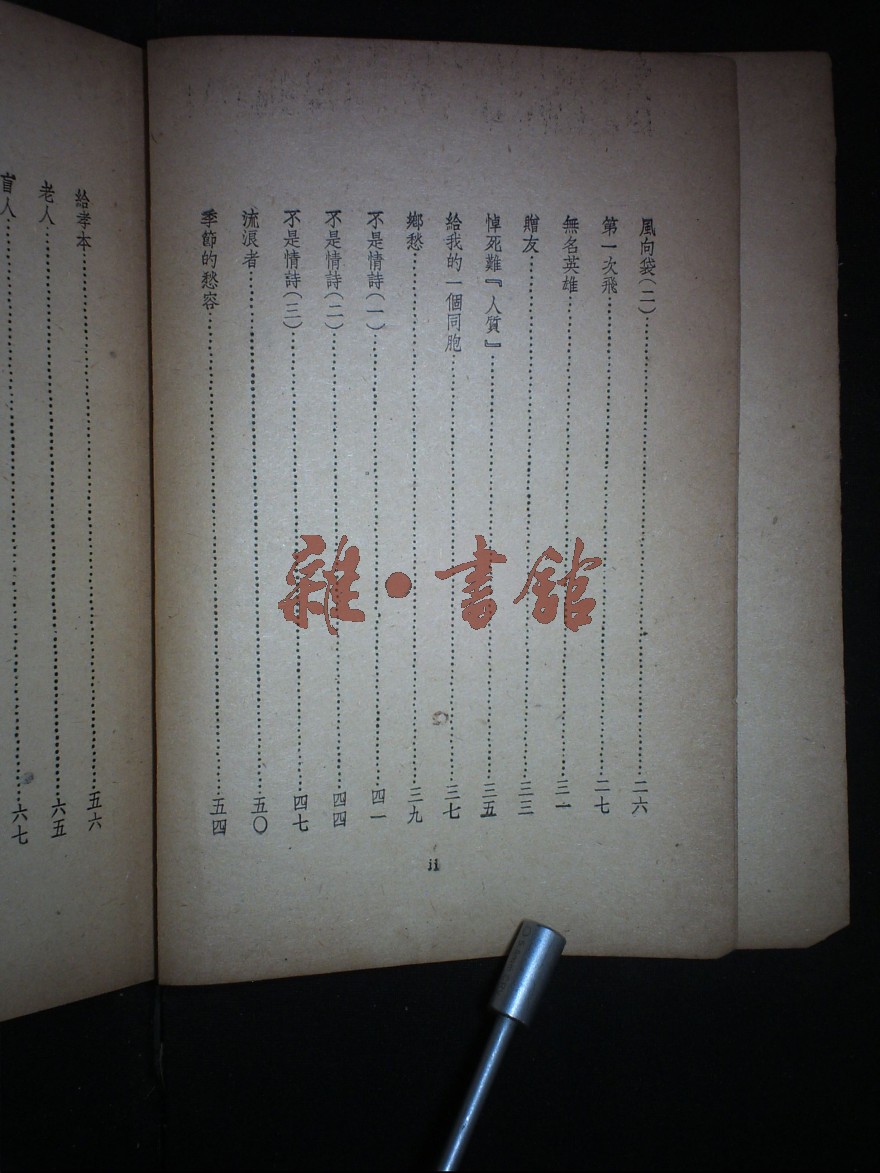 風向袋(二)……二六
第一次飛……二七
無名英雄……三一
贈友……三三
悼死難『人質』……三五
給我的一個同胞……三七
鄉愁……三九
不是情詩(一)……四一
不是情詩(二)……四四
不是情詩(三)……四七
流浪者……五〇
季節的愁容……五四
ii
給孝本……五六
老人……六五
盲人……六七
雜·書館